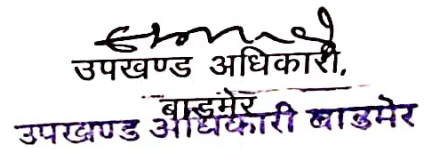 उपखण्ड अधिकारी,
बाड़मेर
उपखण्ड अधिकारी बाडमेर